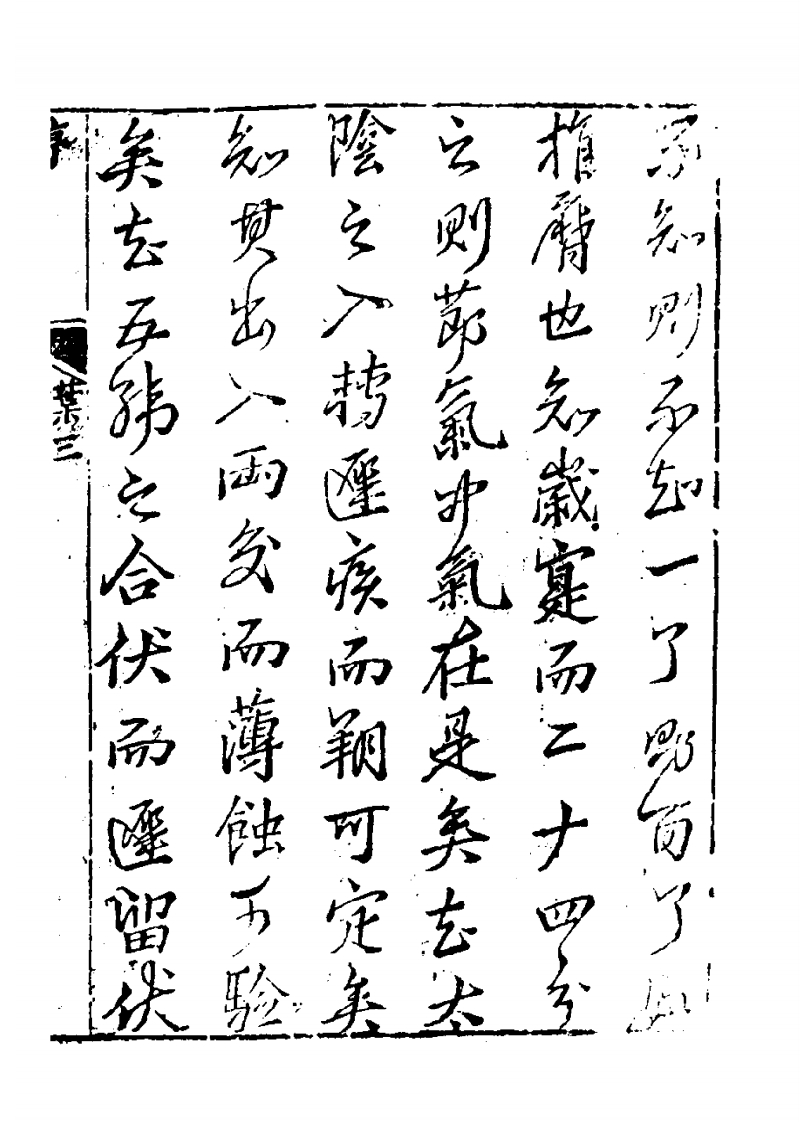 知則不知一了即百了
推曆也知歲寔而二十四分
之則節氣中氣在是矣知太
陰之入轉遲疾而朔可定矣
知其出入兩交而薄蝕可驗
矣知五緯之合伏而遲留伏
序 葉三